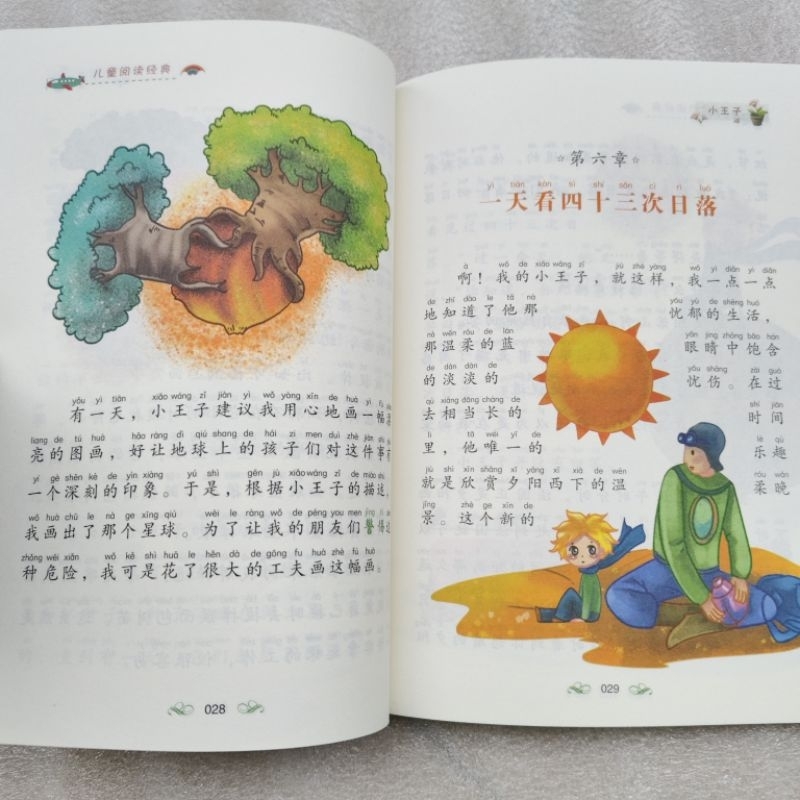 儿童阅读经典
yǒu yì tiān xiǎo wáng zǐ jiàn yì wǒ yòng xīn de huà yì fú
有一天，小王子建议我用心地画一幅
liang de tú huà hǎo ràng dì qiú shang de hái zi men duì zhè jiàn shì
亮的图画，好让地球上的孩子们对这件事
yí gè shēn kè de yìn xiàng yú shì gēn jù xiǎo wáng zǐ de miáo
一个深刻的印象。于是，根据小王子的描述，
wǒ huà chū le nà ge xīng qiú wèi le ràng wǒ de péng you men jǐng
我画出了那个星球。为了让我的朋友们警惕这
zhǒng wēi xiǎn wǒ kě shì huā le hěn dà de gōng fu huà zhè fú huà
种危险，我可是花了很大的工夫画这幅画。
028
小王子
☆第六章☆
yì tiān kàn sì shí sān cì rì luò
一天看四十三次日落
à wǒ de xiǎo wáng zǐ jiù zhè yàng wǒ yì diǎn yì diǎn
啊！我的小王子，就这样，我一点一点
de zhī dào le tā nà yōu yù de shēng huó
地知道了他那 忧郁的生活，
nà wēn róu de lán yǎn jing zhōng bǎo hán
那温柔的蓝 眼睛中饱含
de dàn dàn de yōu shāng zài guò
的淡淡的 忧伤。在过
qù xiāng dāng cháng de shí jiān
去相当长的 时间
lǐ tā wéi yī de lè qù
里，他唯一的 乐趣
jiù shì xīn shǎng xī yáng xī xià de wēn róu wǎn
就是欣赏夕阳西下的温 柔晚
jǐng zhè ge xīn de
景。这个新的
029